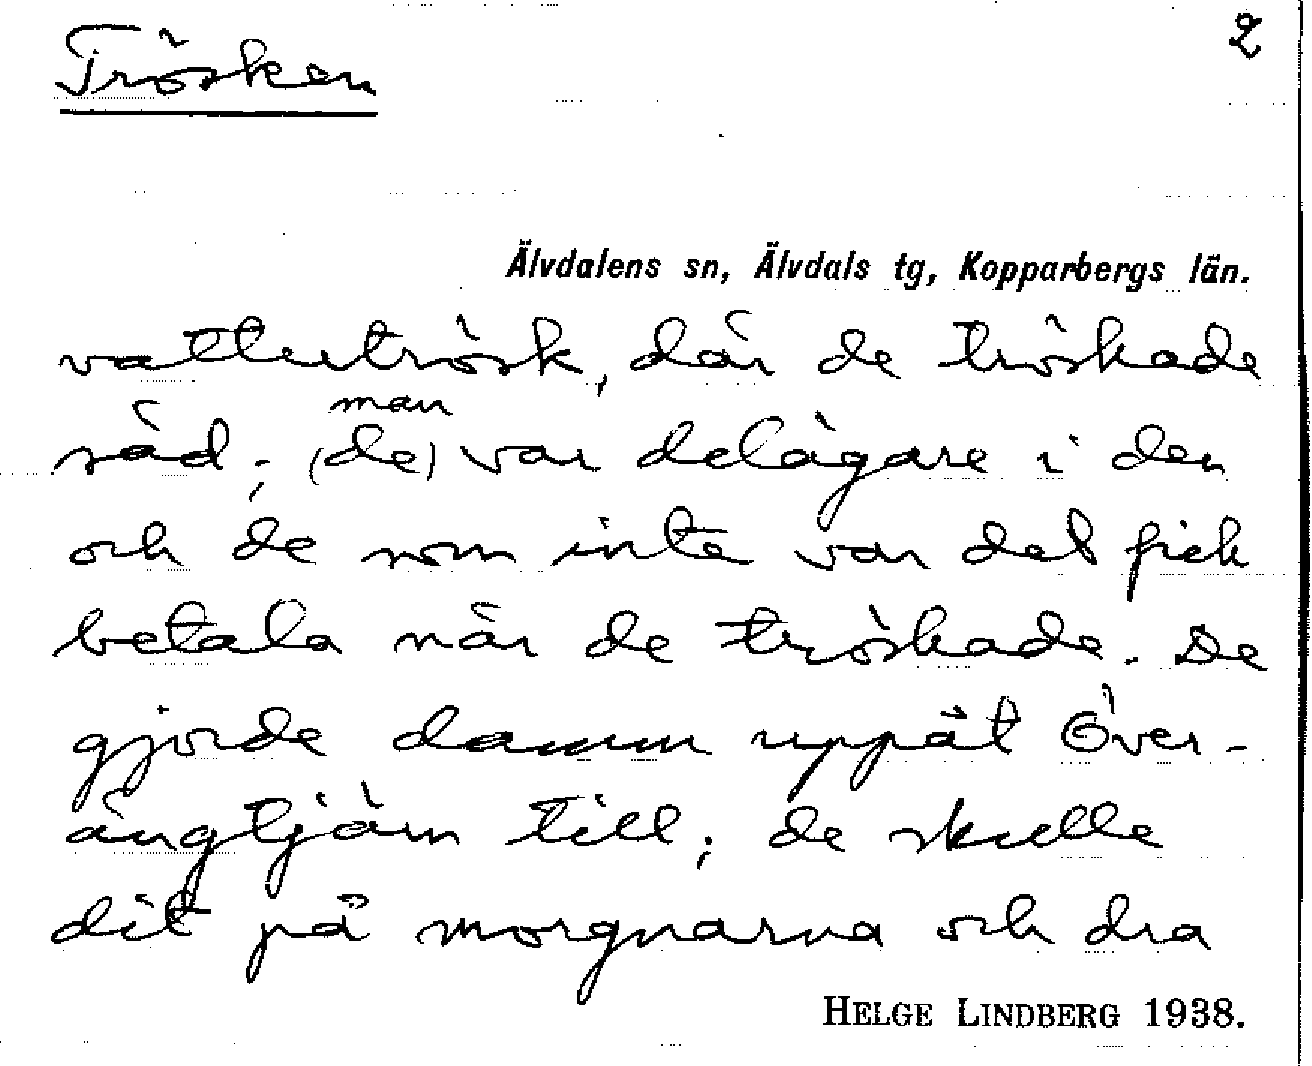 Trösken
2
Älvdalens sn, Älvdals tg, Kopparbergs län.
vattutrösk, där de tröskade
man
säd; (de) var delägare i den
och de som inte var del fick
betala när de tröskade. De
gjorde damm uppåt Över-
ängtjärn till; de skulle
dit på morgnarna och dra
HELGE LINDBERG 1938.